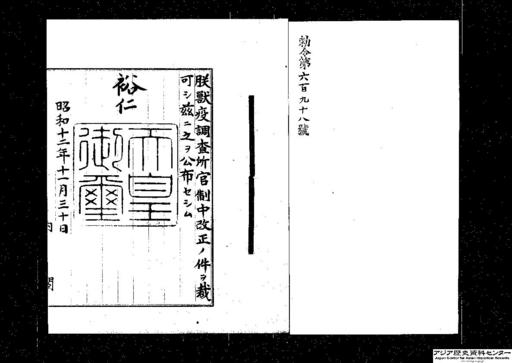 勅令第六百九十八號
朕獸疫調査所官制中改正ノ件ヲ裁
可シ茲ニ之ヲ公布セシム
裕仁
天皇御璽
昭和十二年十一月三十日
内閣
アジア歴史資料センター
Japan Center for Asian Historical Records